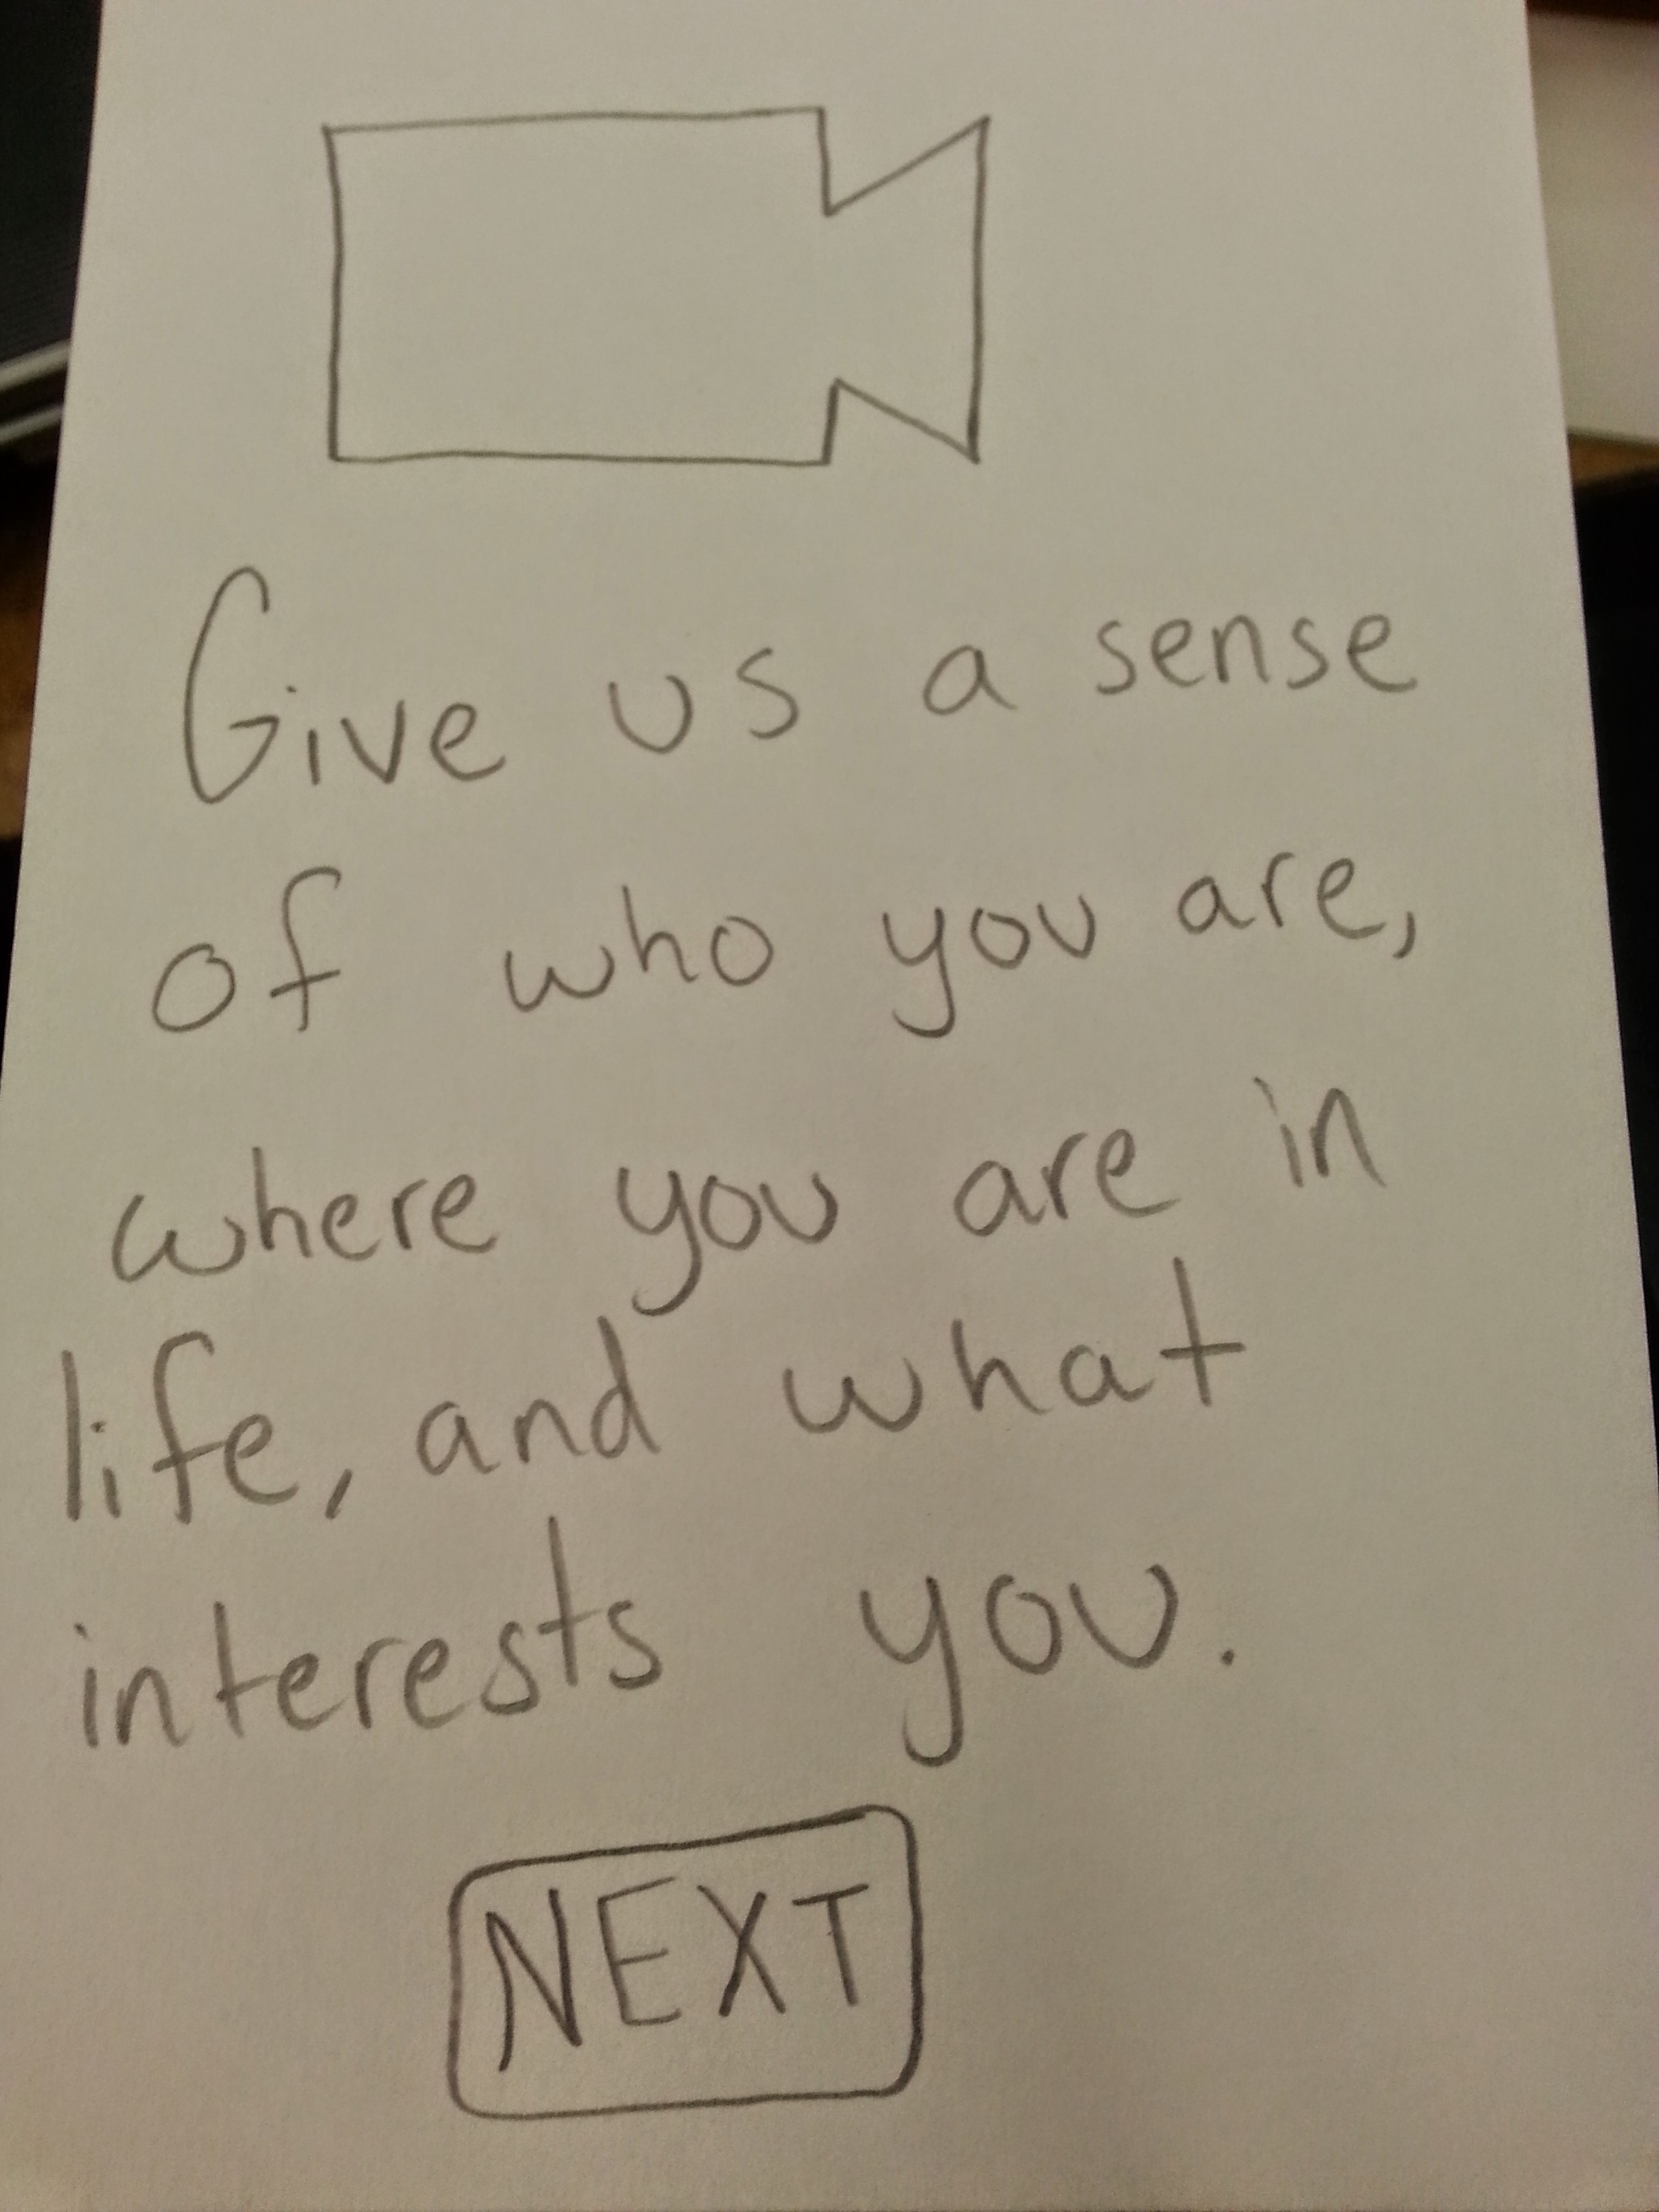 Give us a sense
of who you are,
where you are in
life, and what
interests you.
NEXT